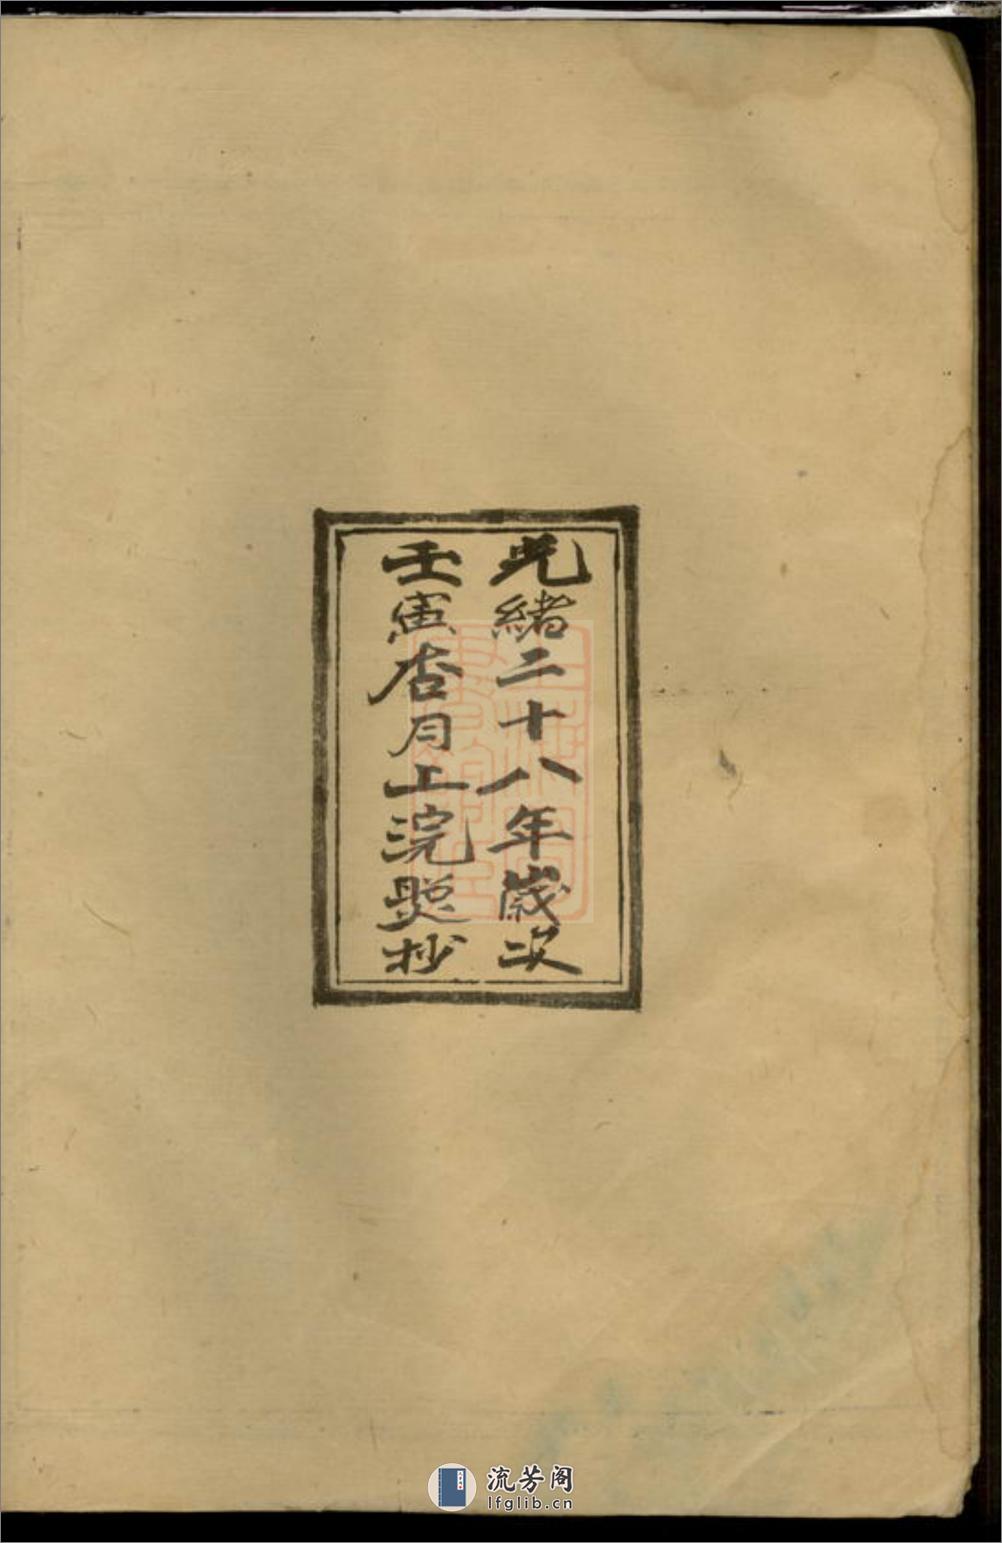 光緒二十八年歲次
壬寅杏月上浣謄抄
流芳阁
lfglib.cn